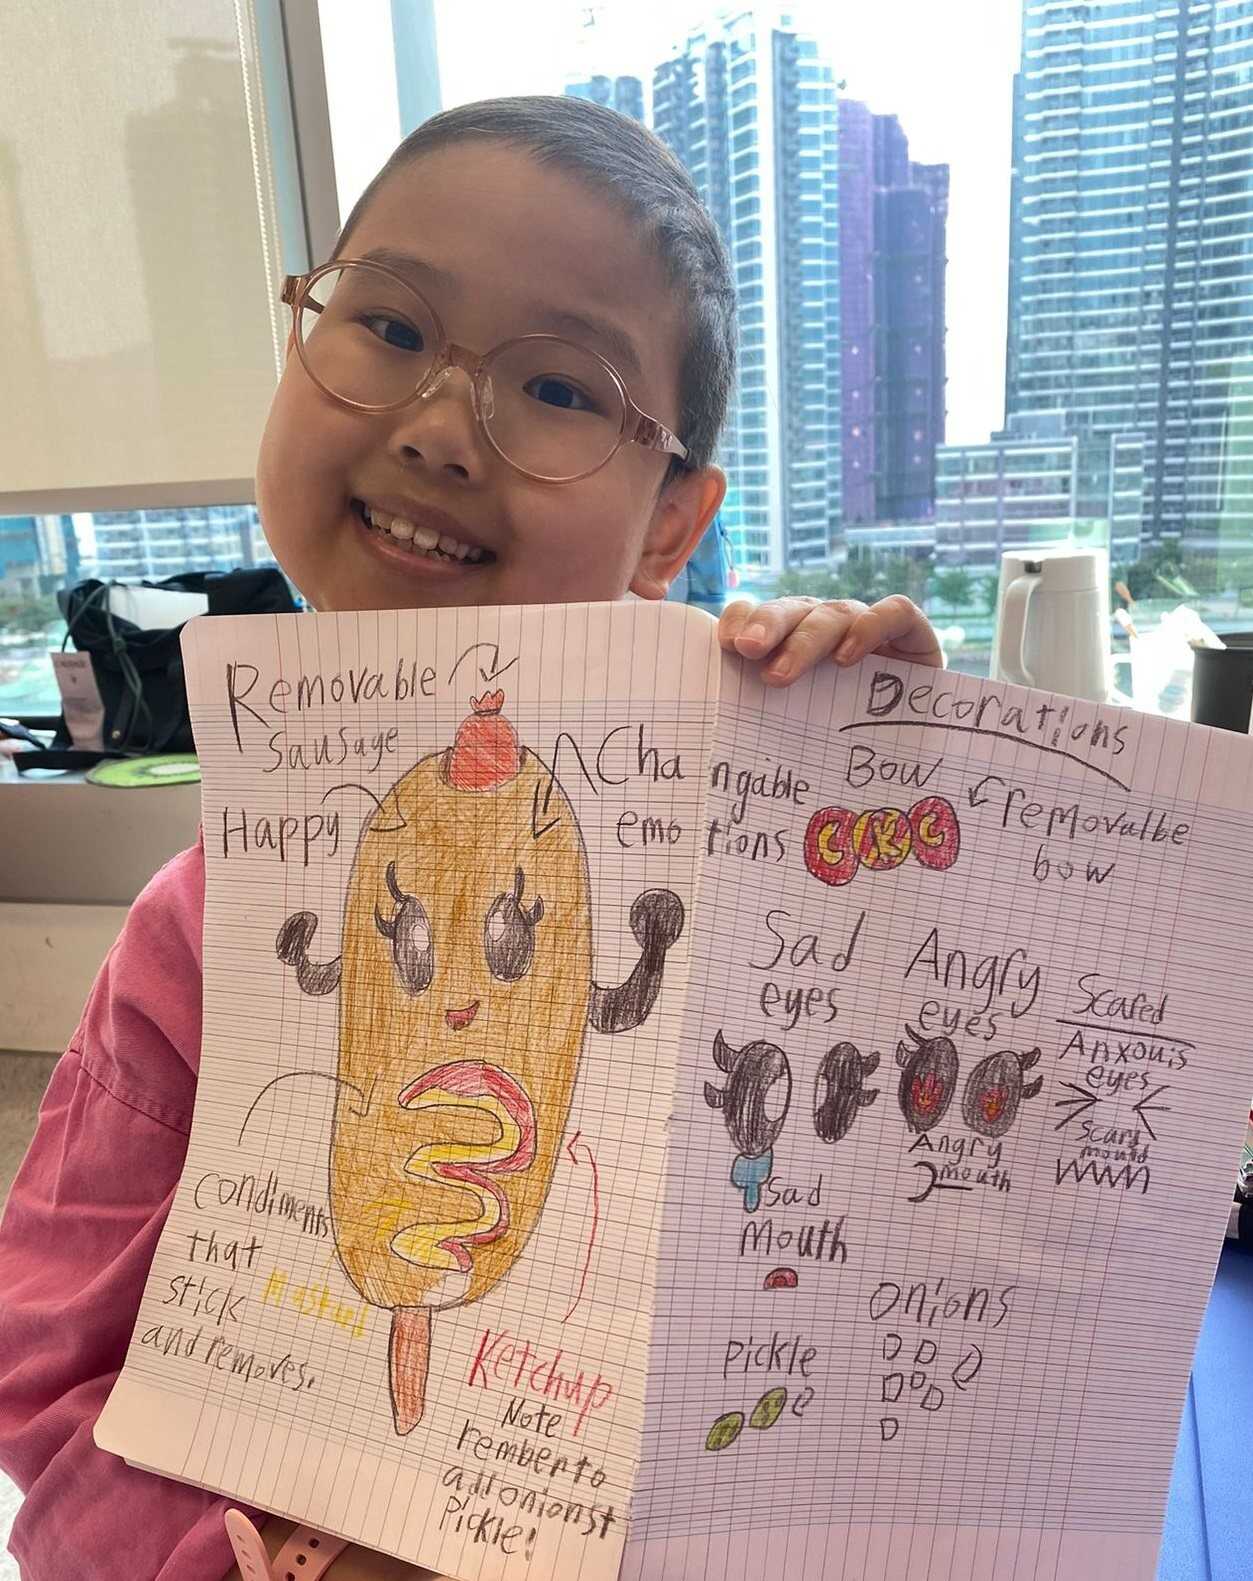 Removable
sausage
Happy
Changable
emotions
Condiments
that
stick
and removes.
Musturd
Ketchup
Note
rember to
add onions +
Pickle!
Decorations
Bow
removalbe
bow
Sad
eyes
Angry
eyes
Scared
Anxouis
eyes
Scary
mouth
Angry
mouth
Sad
mouth
Onions
Pickle